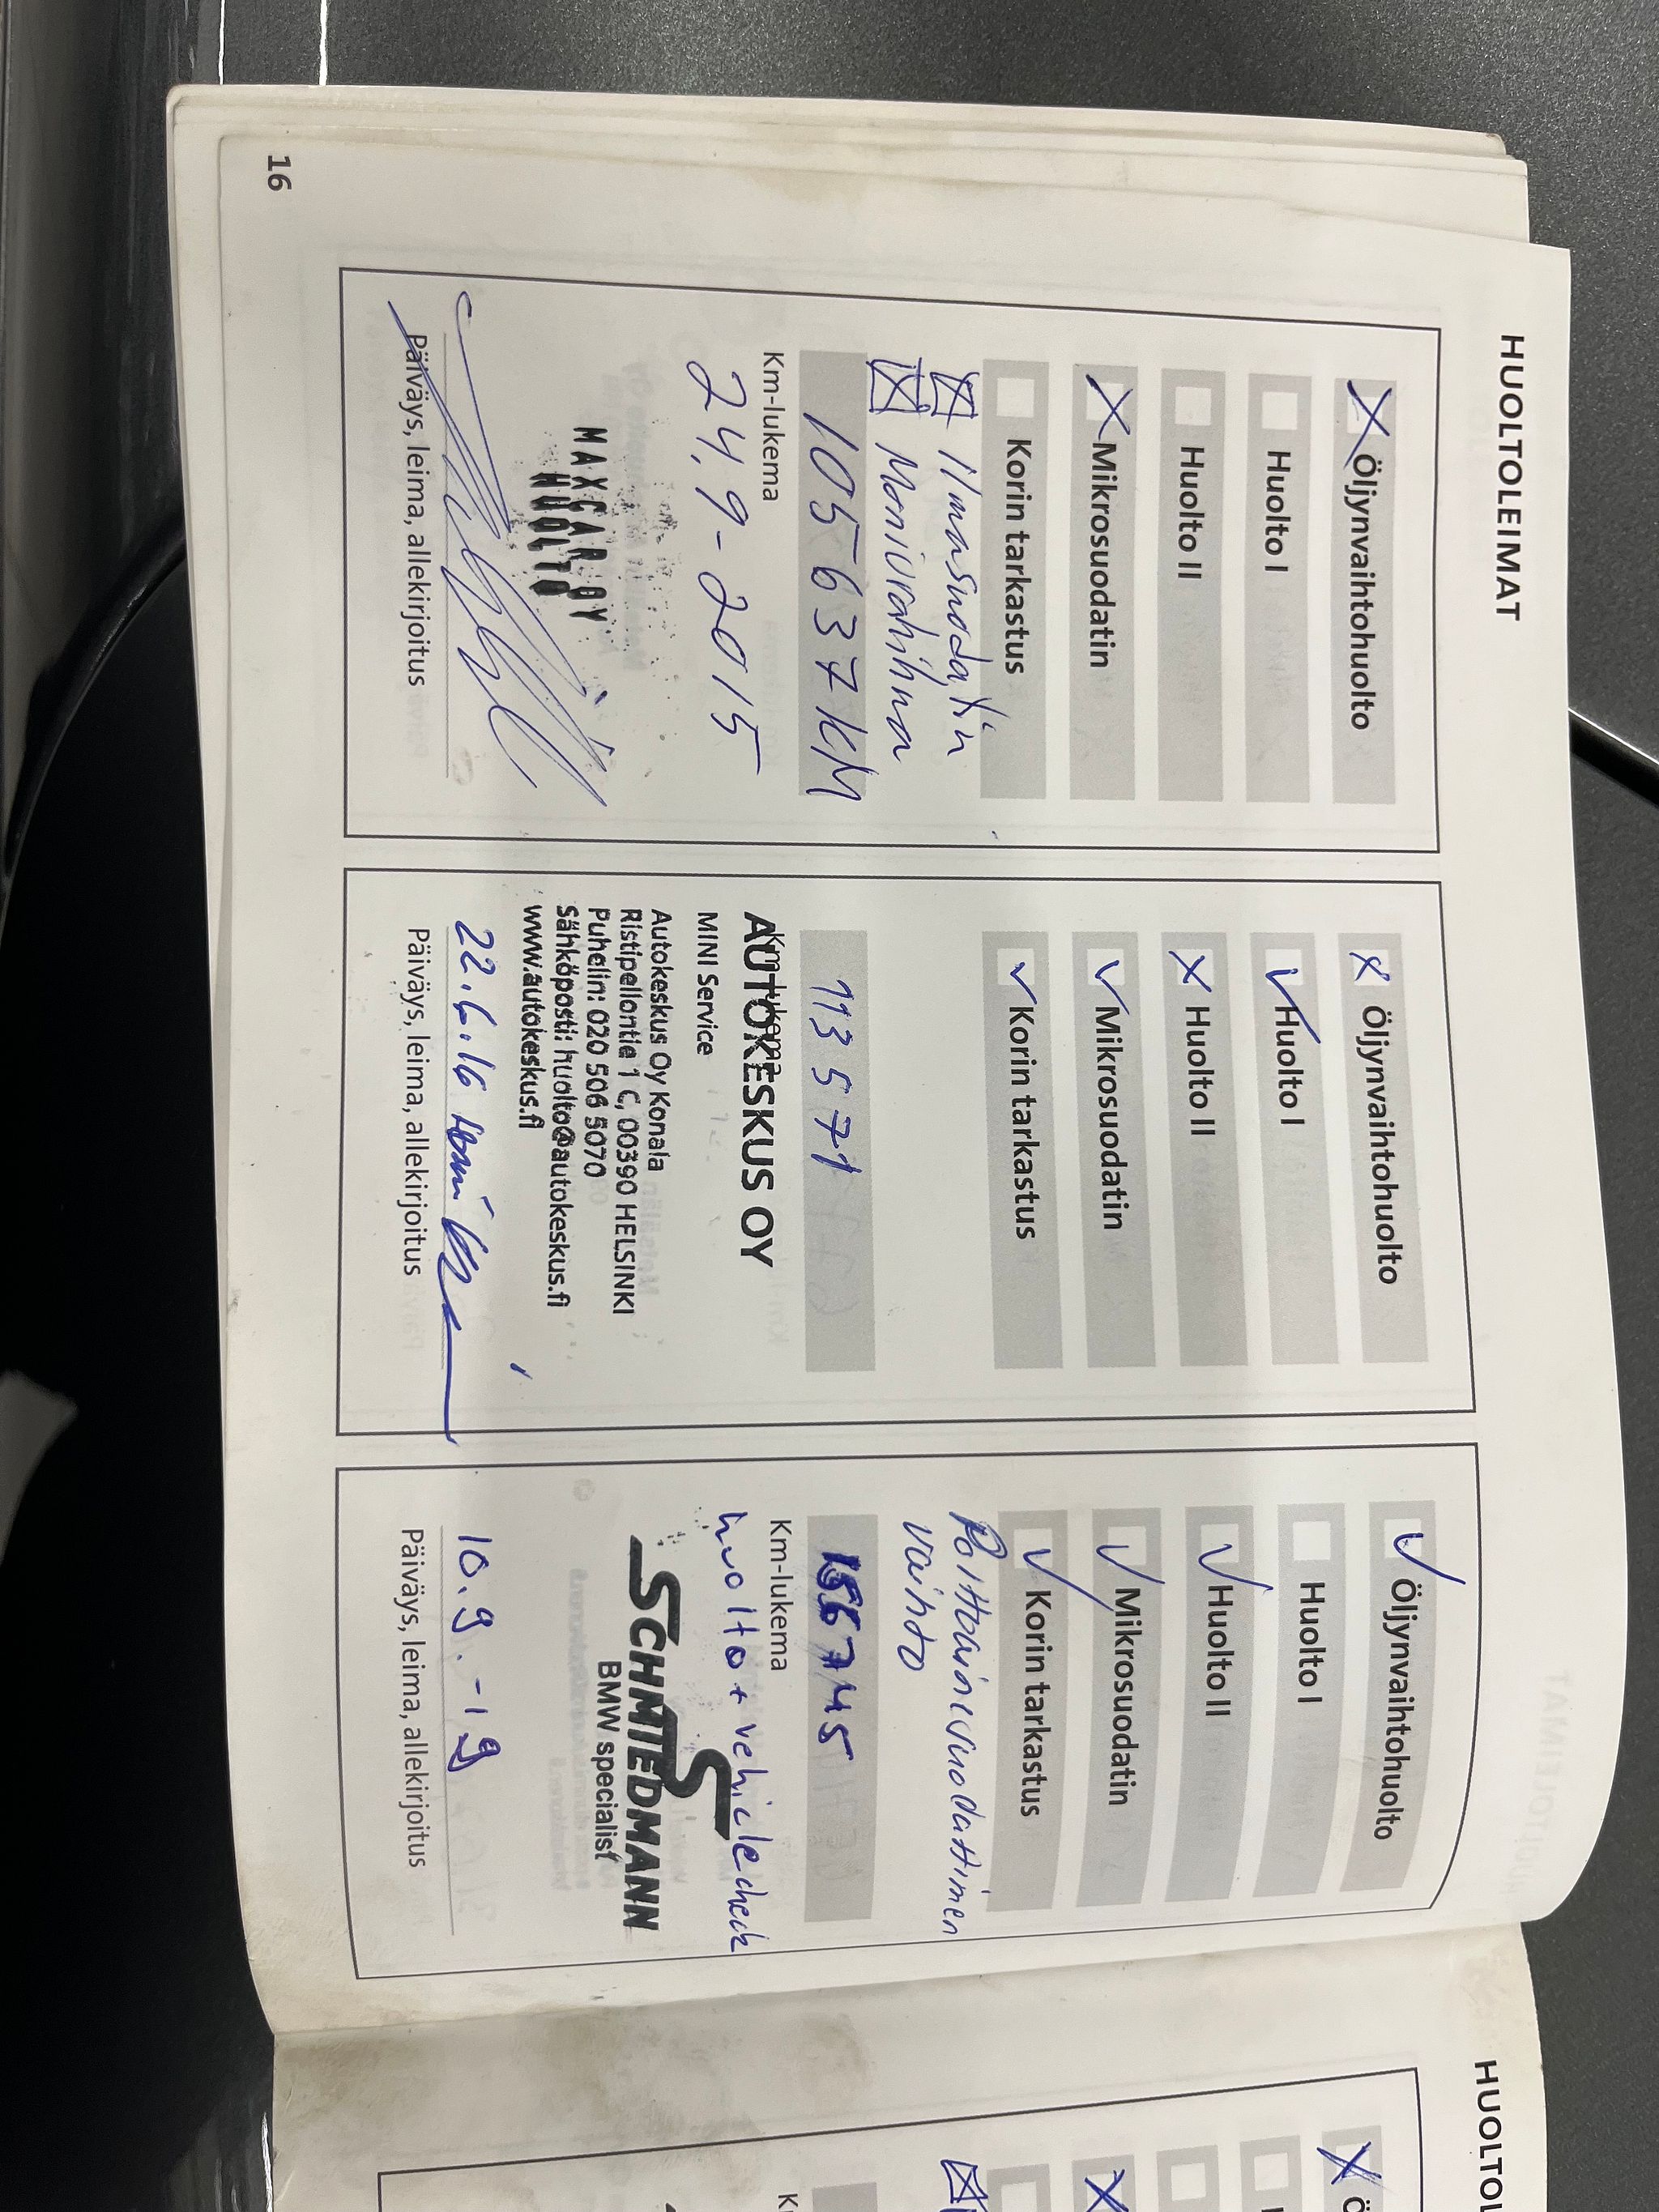 HUOLTOLEIMAT
X Öljynvaihtohuolto
Huolto I
Huolto II
X Mikrosuodatin
Korin tarkastus
Ilmasuodatin
Moniurahihna
105637 KM
Km-lukema
24.9-2015
MAXCAR OY
HUOLTO
Päiväys, leima, allekirjoitus
X Öljynvaihtohuolto
✓ Huolto I
X Huolto II
✓ Mikrosuodatin
✓ Korin tarkastus
113571
Km-lukema
AUTOKESKUS OY
MINI Service
Autokeskus Oy Konala
Ristipellontie 1 C, 00390 HELSINKI
Puhelin: 020 506 5070
Sähköposti: huolto@autokeskus.fi
www.autokeskus.fi
22.6.16
Päiväys, leima, allekirjoitus
✓ Öljynvaihtohuolto
Huolto I
✓ Huolto II
✓ Mikrosuodatin
✓ Korin tarkastus
Polttoainesuodattimen
vaihto
Km-lukema
huolto + vehicle check
SCHMIEDMANN
BMW specialist
10.9.-19
Päiväys, leima, allekirjoitus
16